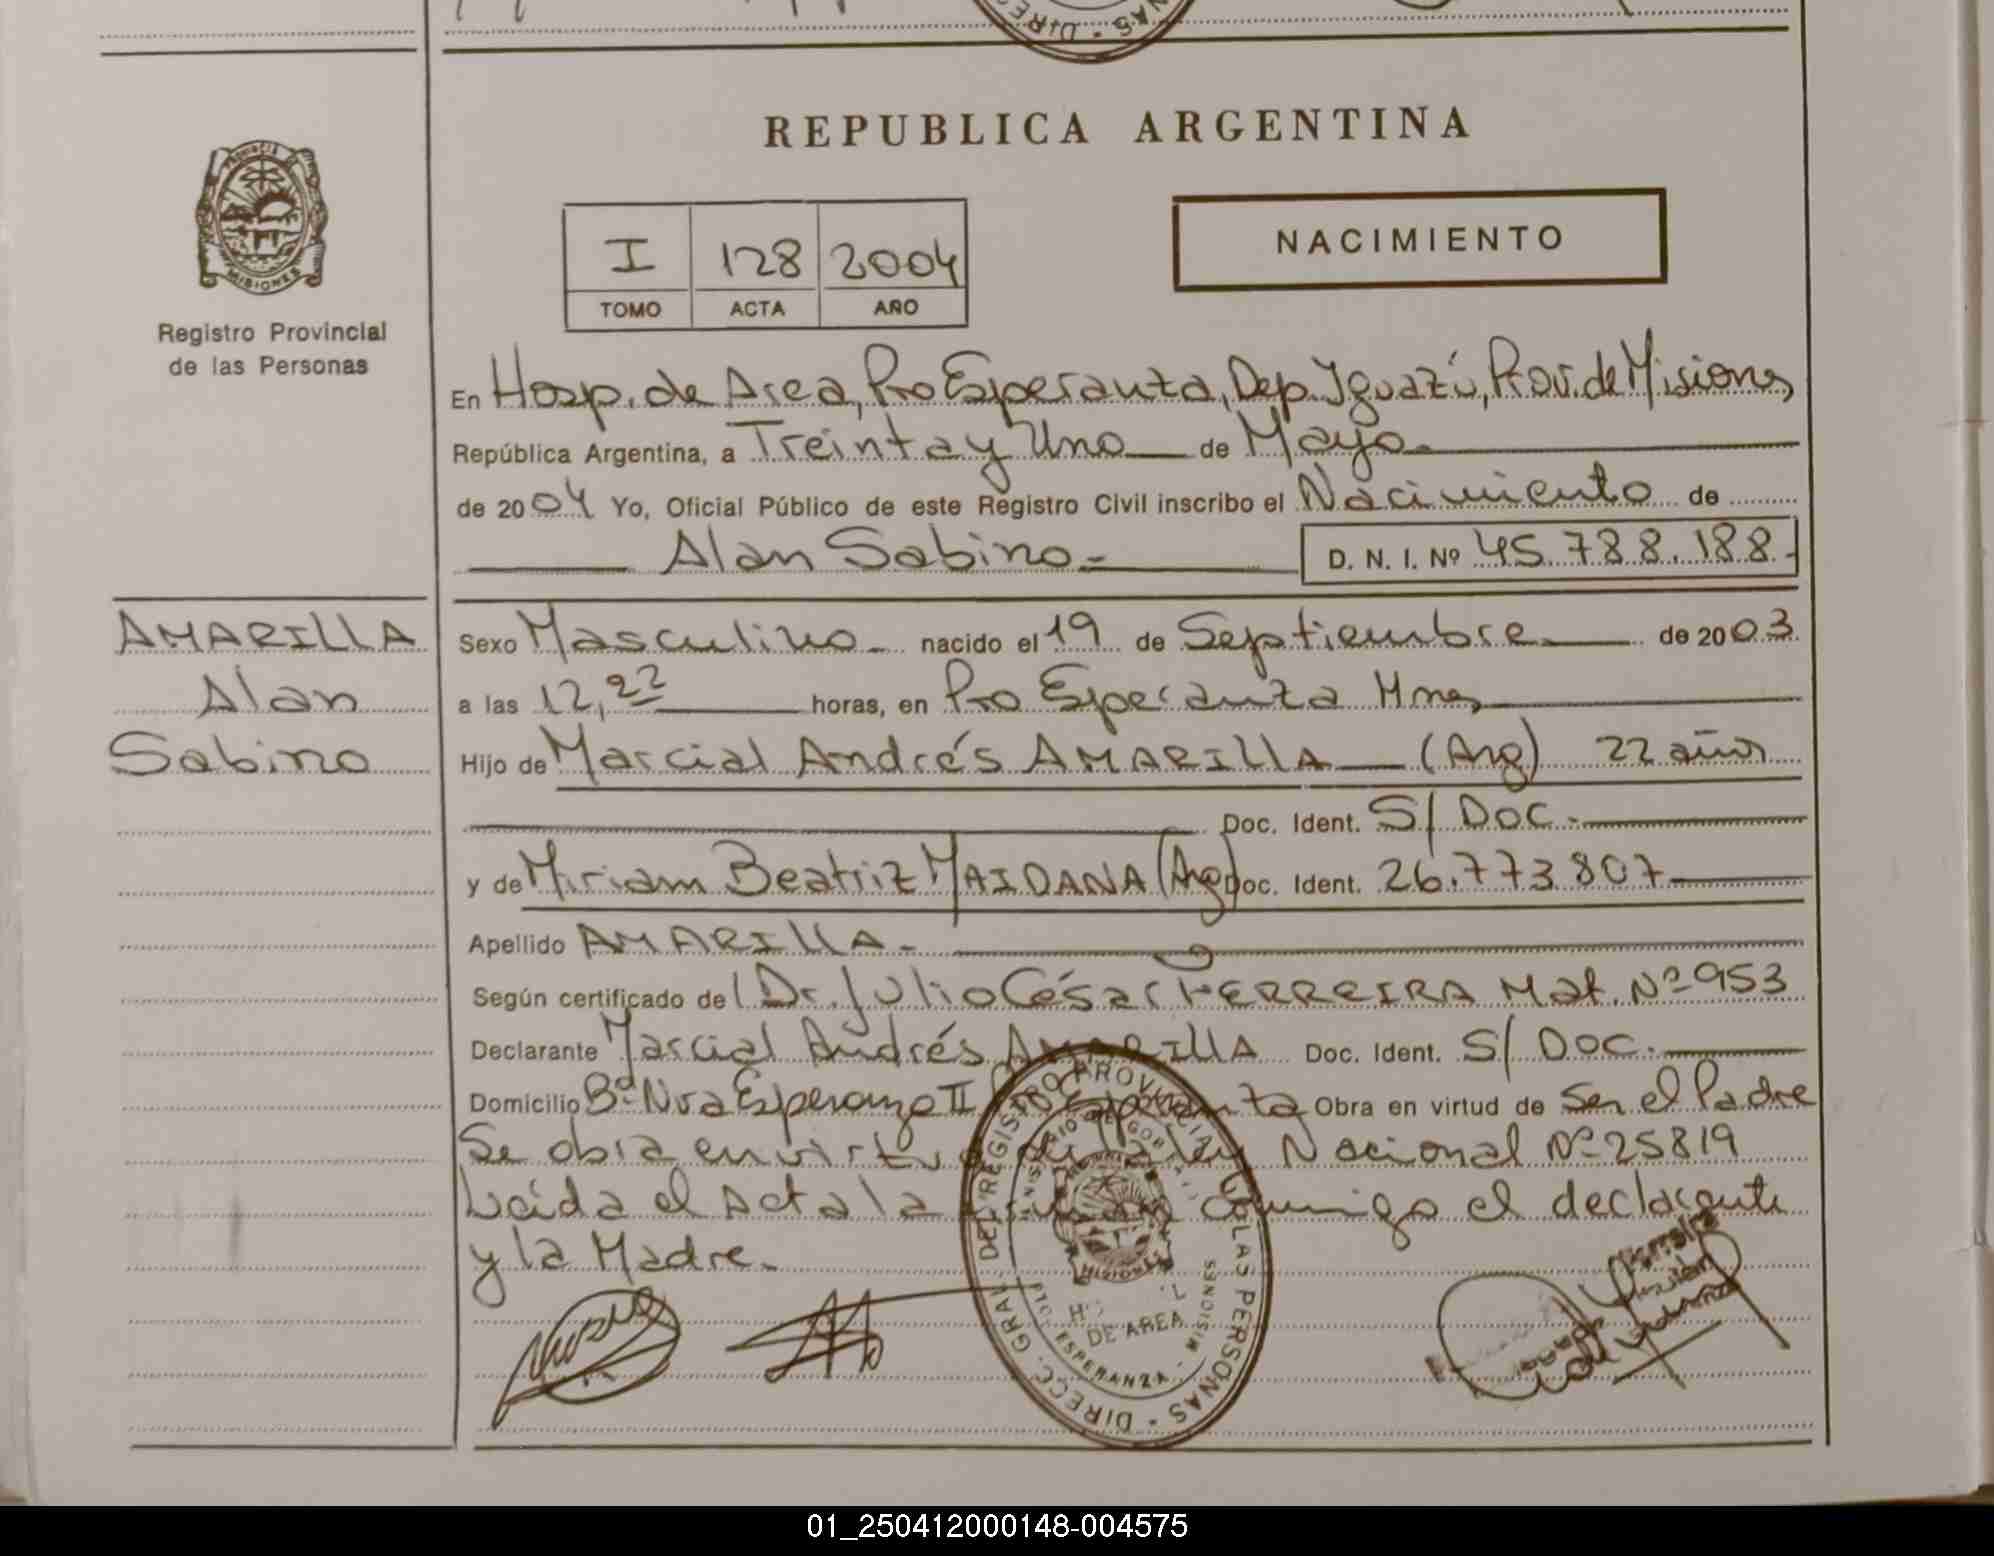 REPUBLICA ARGENTINA
PROVINCIA DE
MISIONES
Registro Provincial
de las Personas
I 128 2004
TOMO ACTA AÑO
NACIMIENTO
En Hosp. de Area, Pto Esperanza, Dep. Iguazú, Prov. de Misiones,
República Argentina, a Treinta y Uno de Mayo
de 2004 Yo, Oficial Público de este Registro Civil inscribo el Nacimiento de
Alan Sabino D. N. I. Nº 45.788.188.-
AMARILLA
Alan
Sabino
Sexo Masculino nacido el 19 de Septiembre de 2003
a las 12,22 horas, en Pto Esperanza Mnes
Hijo de Marcial Andrés AMARILLA (Arg) 22 años
Doc. Ident. S/ Doc.
y de Miriam Beatriz MAIDANA (Arg) Doc. Ident. 26.773.807
Apellido AMARILLA
Según certificado del Dr. Julio César FERREIRA Mat. Nº 953
Declarante Marcial Andrés AMARILLA Doc. Ident. S/ Doc.
Domicilio Bº Nva Esperanza II Pto Esperanza Obra en virtud de Ser el Padre
Se obra en virtud de la Ley Nacional Nº 25819
Leída el Acta la firman conmigo el declarante
y la Madre.
DIRECC. GRAL. DEL REGISTRO PROVINCIAL DE LAS PERSONAS
MISIONES
DE AREA
PTO. ESPERANZA - MISIONES
01_250412000148-004575